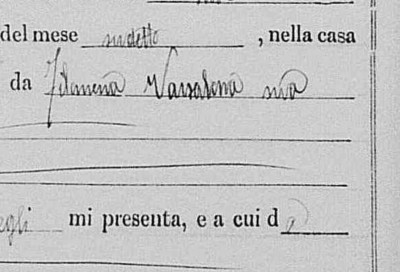 del mese sudetto, nella casa
da Filomena Vassalena sua
egli mi presenta, e a cui d a